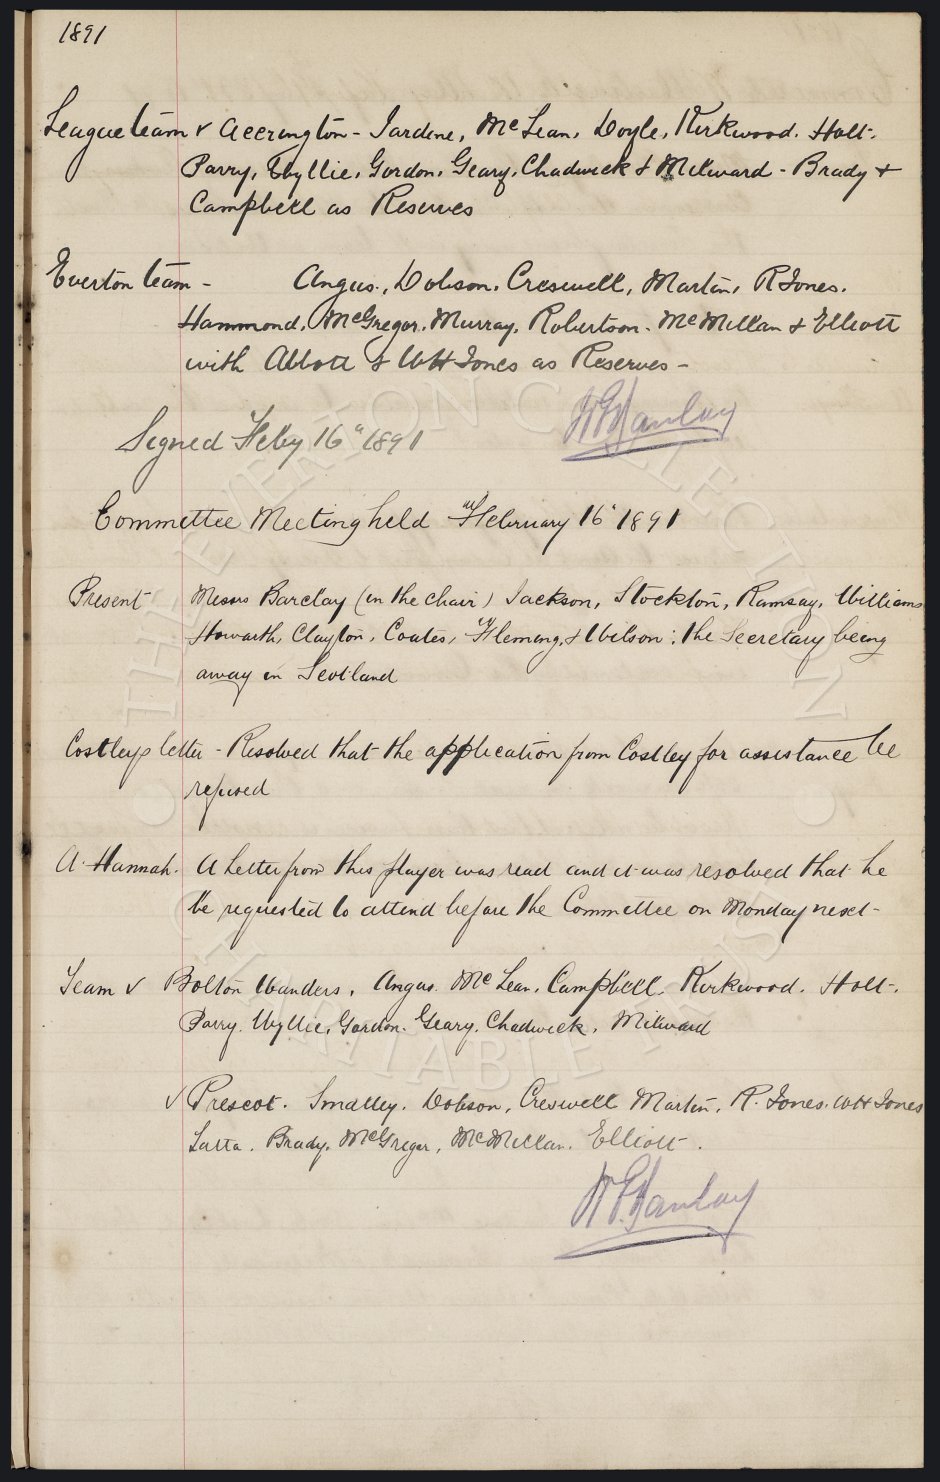 1891
League team v Accrington - Jardine, McLean, Doyle, Kirkwood. Holt.
Parry, Wyllie, Gordon, Geary, Chadwick & Milward - Brady &
Campbell as Reserves
Everton team - Angus, Dobson, Creswell, Martin, R Jones,
Hammond, McGregor, Murray, Robertson. McMillan & Elliott
with Abbott & WH Jones as Reserves -
Signed Feby 16" 1891
Committee Meeting held February 16" 1891
Present Messrs Barclay (in the chair) Jackson, Stockton, Ramsay, Williams
Howarth, Clayton, Coates, Fleming, & Wilson: the Secretary being
away in Scotland
Costleys letter - Resolved that the application from Costley for assistance be
refused
A. Hannah. A letter from this player was read and it was resolved that he
be requested to attend before the Committee on Monday next -
Team v Bolton Wanders, Angus. McLean, Campbell, Kirkwood. Holt.
Parry. Wyllie, Gordon. Geary. Chadwick, Milward
v Prescot. Smalley. Dobson, Creswell Martin, R. Jones. WH Jones
Latta. Brady. McGregor, McMillan. Elliott.
THE EVERTON COLLECTION
CHARITABLE TRUST